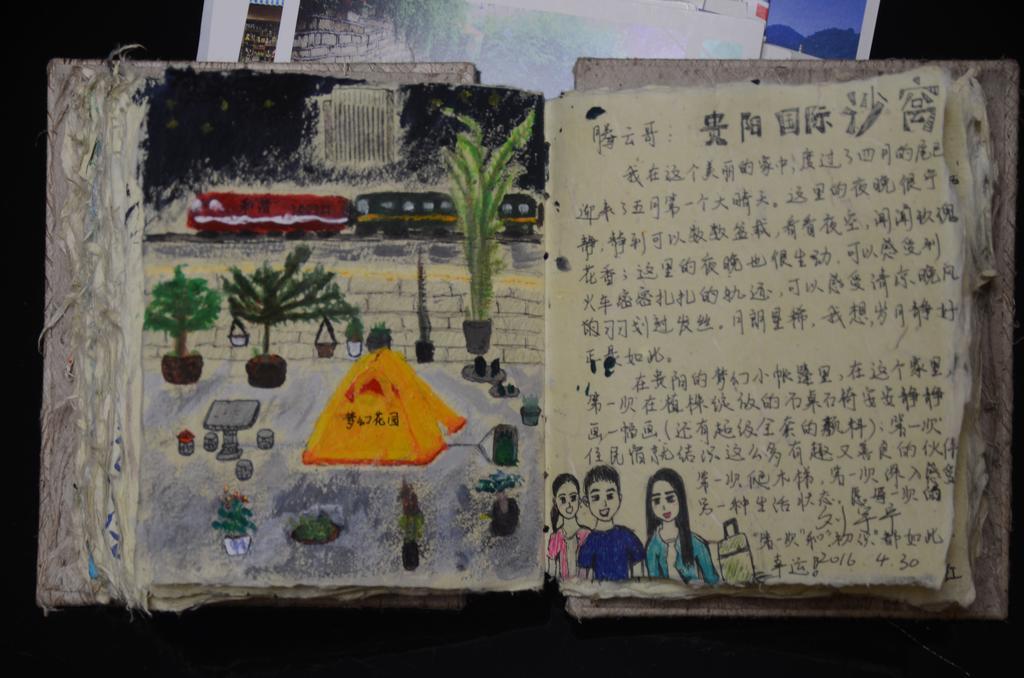 梦幻花园
贵阳国际沙窝
腾云哥:
我在这个美丽的家中,度过了四月的尾巴
迎来了五月第一个大晴天。这里的夜晚很宁
静,静到可以数数盆栽,看看夜空,闻闻玫瑰
花香;这里的夜晚也很生动,可以感受到
火车轨迹,可以感受清凉晚风
的习习划过发丝。月朗星稀,我想,岁月静好
正是如此。
在贵阳的梦幻小帐篷里,在这个家里,
第一次在植株绽放的石桌石椅安安静静
画一幅画(还有超级全套的颜料);第一次
住民宿就结识这么多有趣又善良的伙伴
第一次爬木梯,第一次深入感受
另一种生活状态,愿每一次的
"第一次"和"初识"都如此
幸运!2016.4.30